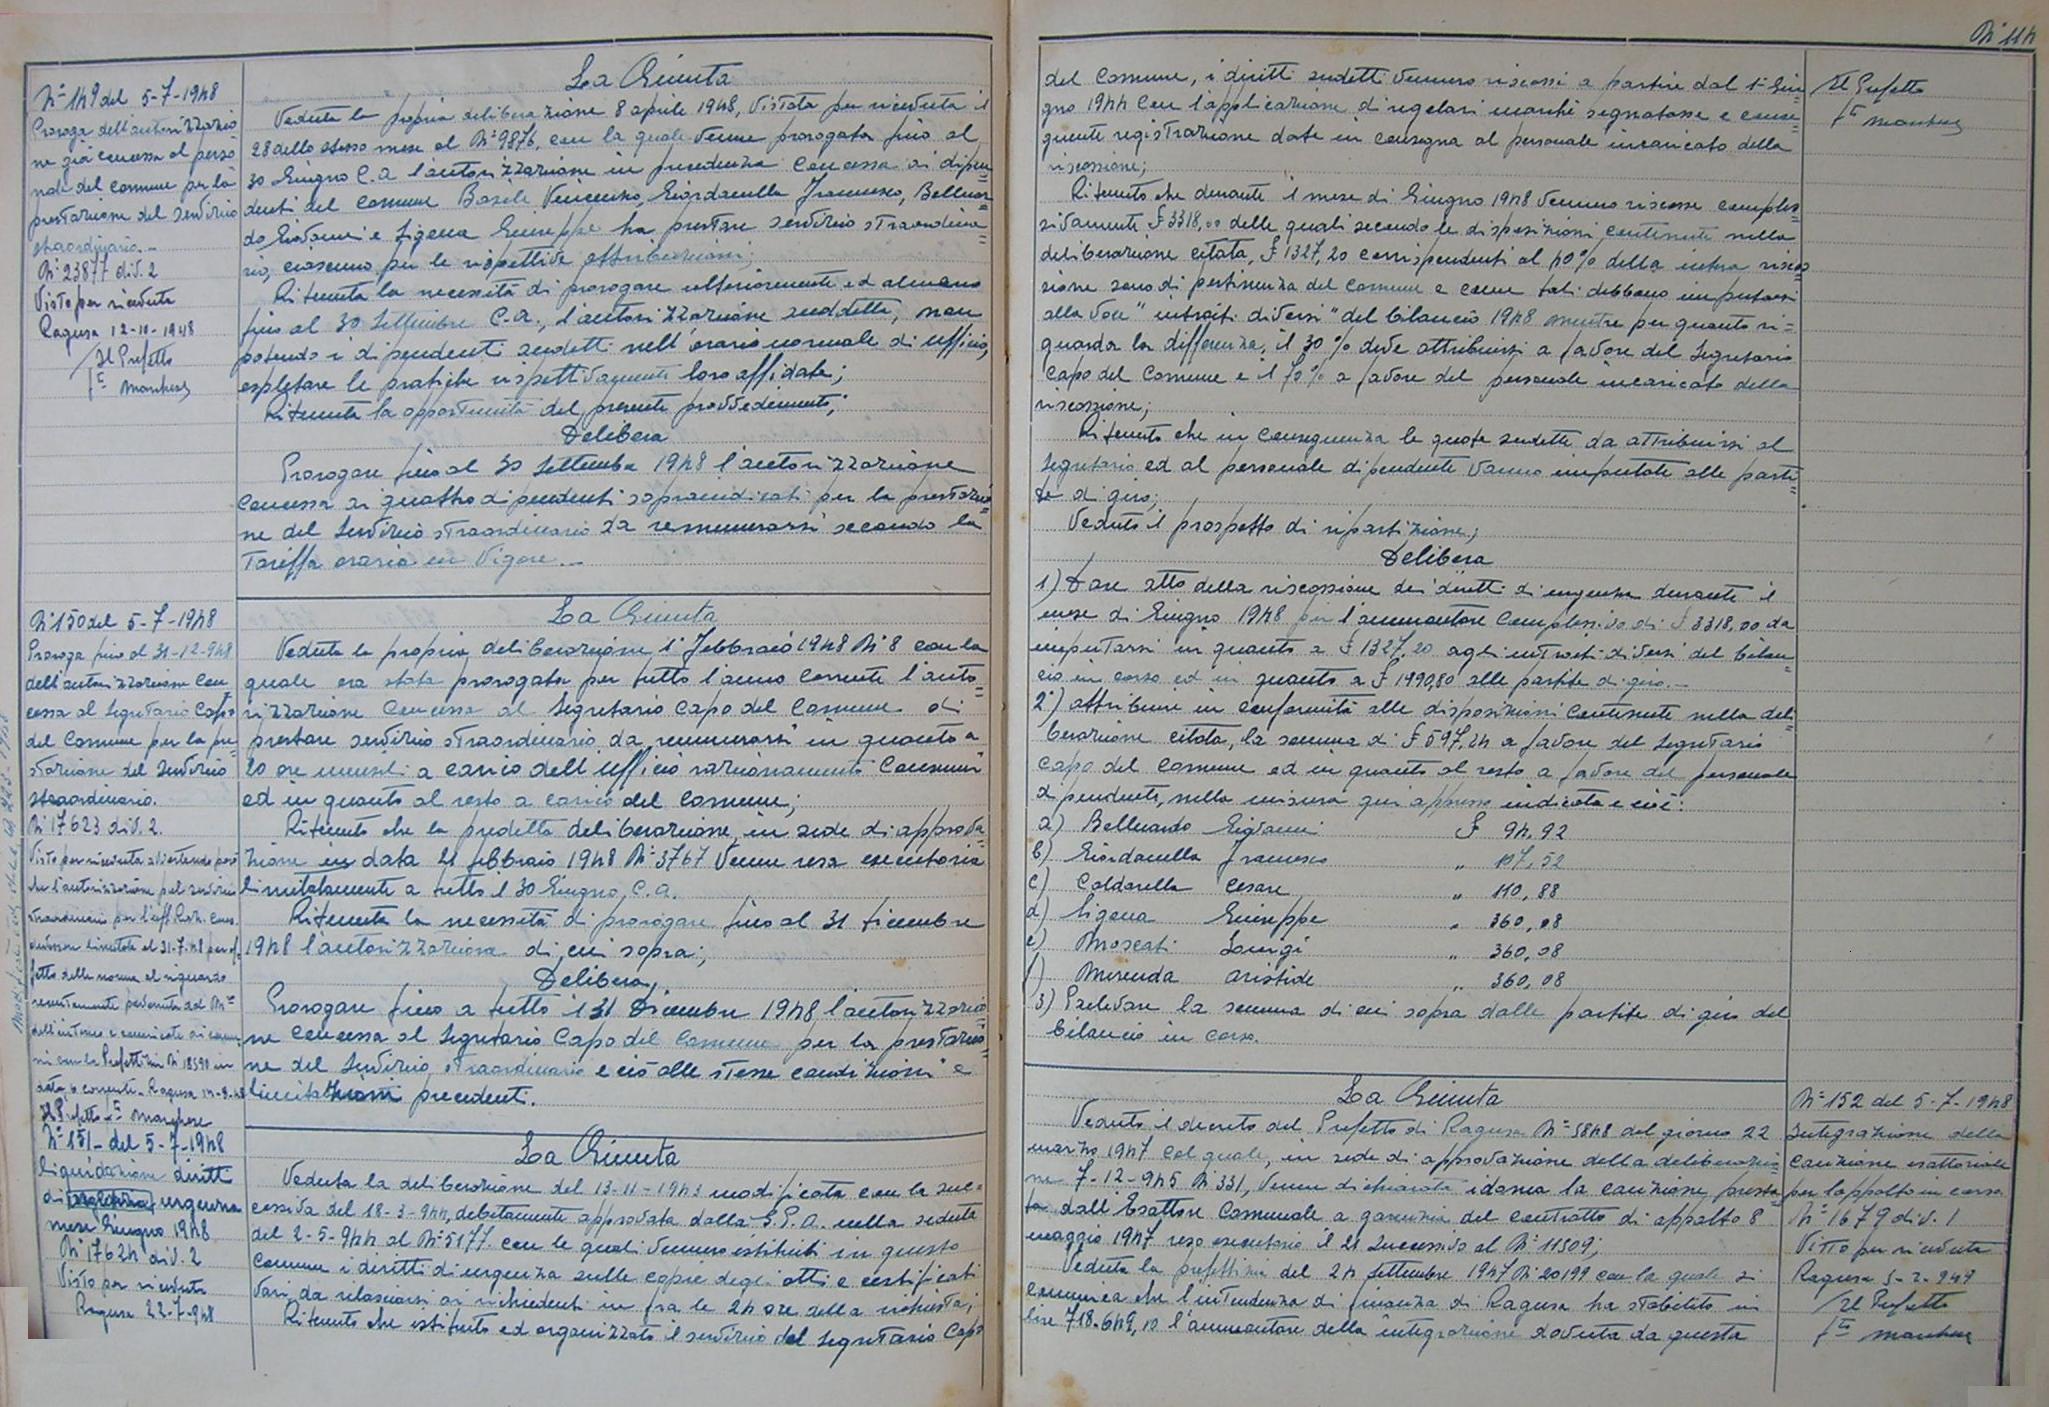 N° 149 del 5-7-1948
Proroga dell'autorizzazio
ne già concessa al perso
nale del comune per la
prestazione del servizio
straordinario.-
N° 23877 div. 2
Visto per ricevuta
Ragusa 12-10-1948
Il Prefetto
La Giunta
Veduta la propria deliberazione 8 aprile 1948, vistata per ricevuta il
28 dello stesso mese al N° 9876, con la quale venne prorogata fino al
30 Giugno c.a. l'autorizzazione in precedenza concessa ai dipen=
denti del comune Basile Vincenzo, Giordanella Francesco, Belluar=
do Giovanni e Ligena Giuseppe ha prestare servizio straordina=
rio, ciascuno per le rispettive attribuzioni;
Ritenuta la necessità di prorogare ulteriormente ed almeno
fino al 30 Settembre c.a., l'autorizzazione suddetta, non
potendo i dipendenti sudetti nell'orario normale di ufficio,
espletare le pratiche rispettivamente loro affidate;
Ritenuta la opportunità del presente provvedimento;
Delibera
Prorogare fino al 30 Settembre 1948 l'autorizzazione
concessa ai quattro dipendenti sopraindicati per la prestazio=
ne del servizio straordinario da remunerarsi secondo la
Tariffa oraria in vigore.-
N° 150 del 5-7-1948
Proroga fino al 31-12-948
dell'autorizzazione con=
cessa al Segretario Capo
del Comune per la pre=
stazione del servizio
straordinario.
N° 17623 div. 2.
Visto per ricevuta avvertendo però
che l'autorizzazione pel servizio
straordinario per l'uff.
limitata al 31-7-48 per ef=
fetto delle norme al riguardo
recentemente
dell'interno e comunicate ai comu
ni con la Prefettizia N° 18590 in
data corrente. Ragusa
Il Prefetto
La Giunta
Veduta la propria deliberazione 1° Febbraio 1948 N° 8 con la
quale era stata prorogata per tutto l'anno corrente l'auto=
rizzazione concessa al Segretario Capo del Comune di
prestare servizio straordinario da remunerarsi in quanto a
20 ore mensili a carico dell'Ufficio razionamento Consumi
ed in quanto al resto a carico del Comune;
Ritenuto che la predetta deliberazione, in sede di approva
zione in data 21 febbraio 1948 N° 3767 venne resa esecutoria
limitatamente a tutto il 30 Giugno, c.a.
Ritenuta la necessità di prorogare fino al 31 dicembre
1948 l'autorizzazione di cui sopra;
Delibera
Prorogare fino a tutto il 31 Dicembre 1948 l'autorizzazio
ne concessa al Segretario Capo del Comune per la prestazio=
ne del servizio straordinario e ciò alle stesse condizioni e
limitazioni precedenti.
N° 151- del 5-7-1948
liquidazione diritti
di urgenza
mese Giugno 1948
N° 17624 div. 2
Visto per ricevuta
Ragusa 22-7-948
La Giunta
Veduta la deliberazione del 13-11-1943 modificata con la suc=
cessiva del 18-3-944, debitamente approvata dalla G.P.A. nella seduta
del 2-5-944 al N° 5177 con le quali vennero istituiti in questo
comune i diritti di urgenza sulle copie degli atti e certificati
vari da rilasciarsi ai richiedenti in fra le 24 ore della richiesta;
Ritenuto che istituito ed organizzato il servizio dal Segretario Capo
N° 114
del Comune, i diritti sudetti vennero riscossi a partire dal 1° Giu=
gno 1944 con l'applicazione di regolari marche segnatasse e conse=
guente registrazione date in consegna al personale incaricato della
riscossione;
Ritenuto che durante il mese di Giugno 1948 vennero riscosse comples=
sivamente £ 3318,00 delle quali secondo le disposizioni contenute nella
deliberazione citata, £ 1327,20 corrispondenti al 40% della intera riscos=
sione sono di pertinenza del Comune e come tali debbono imputarsi
alla voce "introiti diversi" del bilancio 1948 mentre per quanto ri=
guarda la differenza, il 30% deve attribuirsi a favore del Segretario
Capo del Comune e il 70% a favore del personale incaricato della
riscossione;
Ritenuto che in conseguenza le quote sudette da attribuirsi al
Segretario ed al personale dipendente vanno imputate alle parti=
te di giro;
Veduto il prospetto di ripartizione;
Delibera
1) Dare atto della riscossione dei diritti di urgenza durante il
mese di Giugno 1948 per l'ammontare complessivo di £ 3318,00 da
imputarsi in quanto a £ 1327,20 agli introiti diversi del bilan=
cio in corso ed in quanto a £ 1990,80 alle partite di giro.-
2°) attribuire in conformità alle disposizioni contenute nella deli
berazione citata, la somma di £ 597,24 a favore del Segretario
Capo del Comune ed in quanto al resto a favore del personale
dipendente, nella misura qui appresso indicata e cioè:
a) Belluardo Giovanni £ 94,92
b) Giordanella Francesco " 107,52
c) Caldarella Cesare " 110,88
d) Ligena Giuseppe " 360,08
e) Moscati Luigi " 360,08
f) Mirenda Aristide " 360,08
3) Prelevare la somma di cui sopra dalle partite di giro del
bilancio in corso.
Il Prefetto
La Giunta
Veduto il decreto del Prefetto di Ragusa N° 5848 del giorno 22
marzo 1947 col quale, in sede di approvazione della deliberazio
ne 7-12-945 N. 331, venne dichiarata idonea la cauzione presta=
ta dall'Esattore Comunale a garanzia del contratto di appalto 8
maggio 1947 reso esecutorio il 21 successivo al N° 11509;
Veduta la prefettizia del 24 Settembre 1947 N. 20199 con la quale si
comunica che l'intendenza di finanza di Ragusa ha stabilito in
lire 718.649,10 l'ammontare della integrazione dovuta da questa
N° 152 del 5-7-1948
Integrazione della
cauzione esattoriale
per l'appalto in corso
N° 1679 div. 1
Visto per ricevuta
Ragusa 5-2-949
Il Prefetto